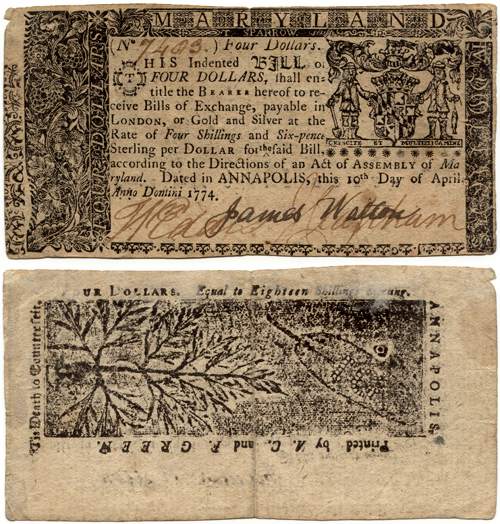 MARYLAND
T SPARROW
DOLLARS.
(No 7483.) Four Dollars.
THIS Indented BILL of
FOUR DOLLARS, shall en-
title the BEARER hereof to re-
ceive Bills of Exchange, payable in
LONDON, or Gold and Silver at the
Rate of Four Shillings and Six-pence
Sterling per DOLLAR for the said Bill,
according to the Directions of an Act of ASSEMBLY of Ma-
ryland. Dated in ANNAPOLIS, this 10th Day of April,
Anno Domini 1774.
CRESCITE ET MULTIPLICAMINI
James
UR DOLLARS. Equal to Eighteen Shillings
'Tis Death to Counterfeit.
ANNAPOLIS.
Printed by A. C. and F. GREEN.